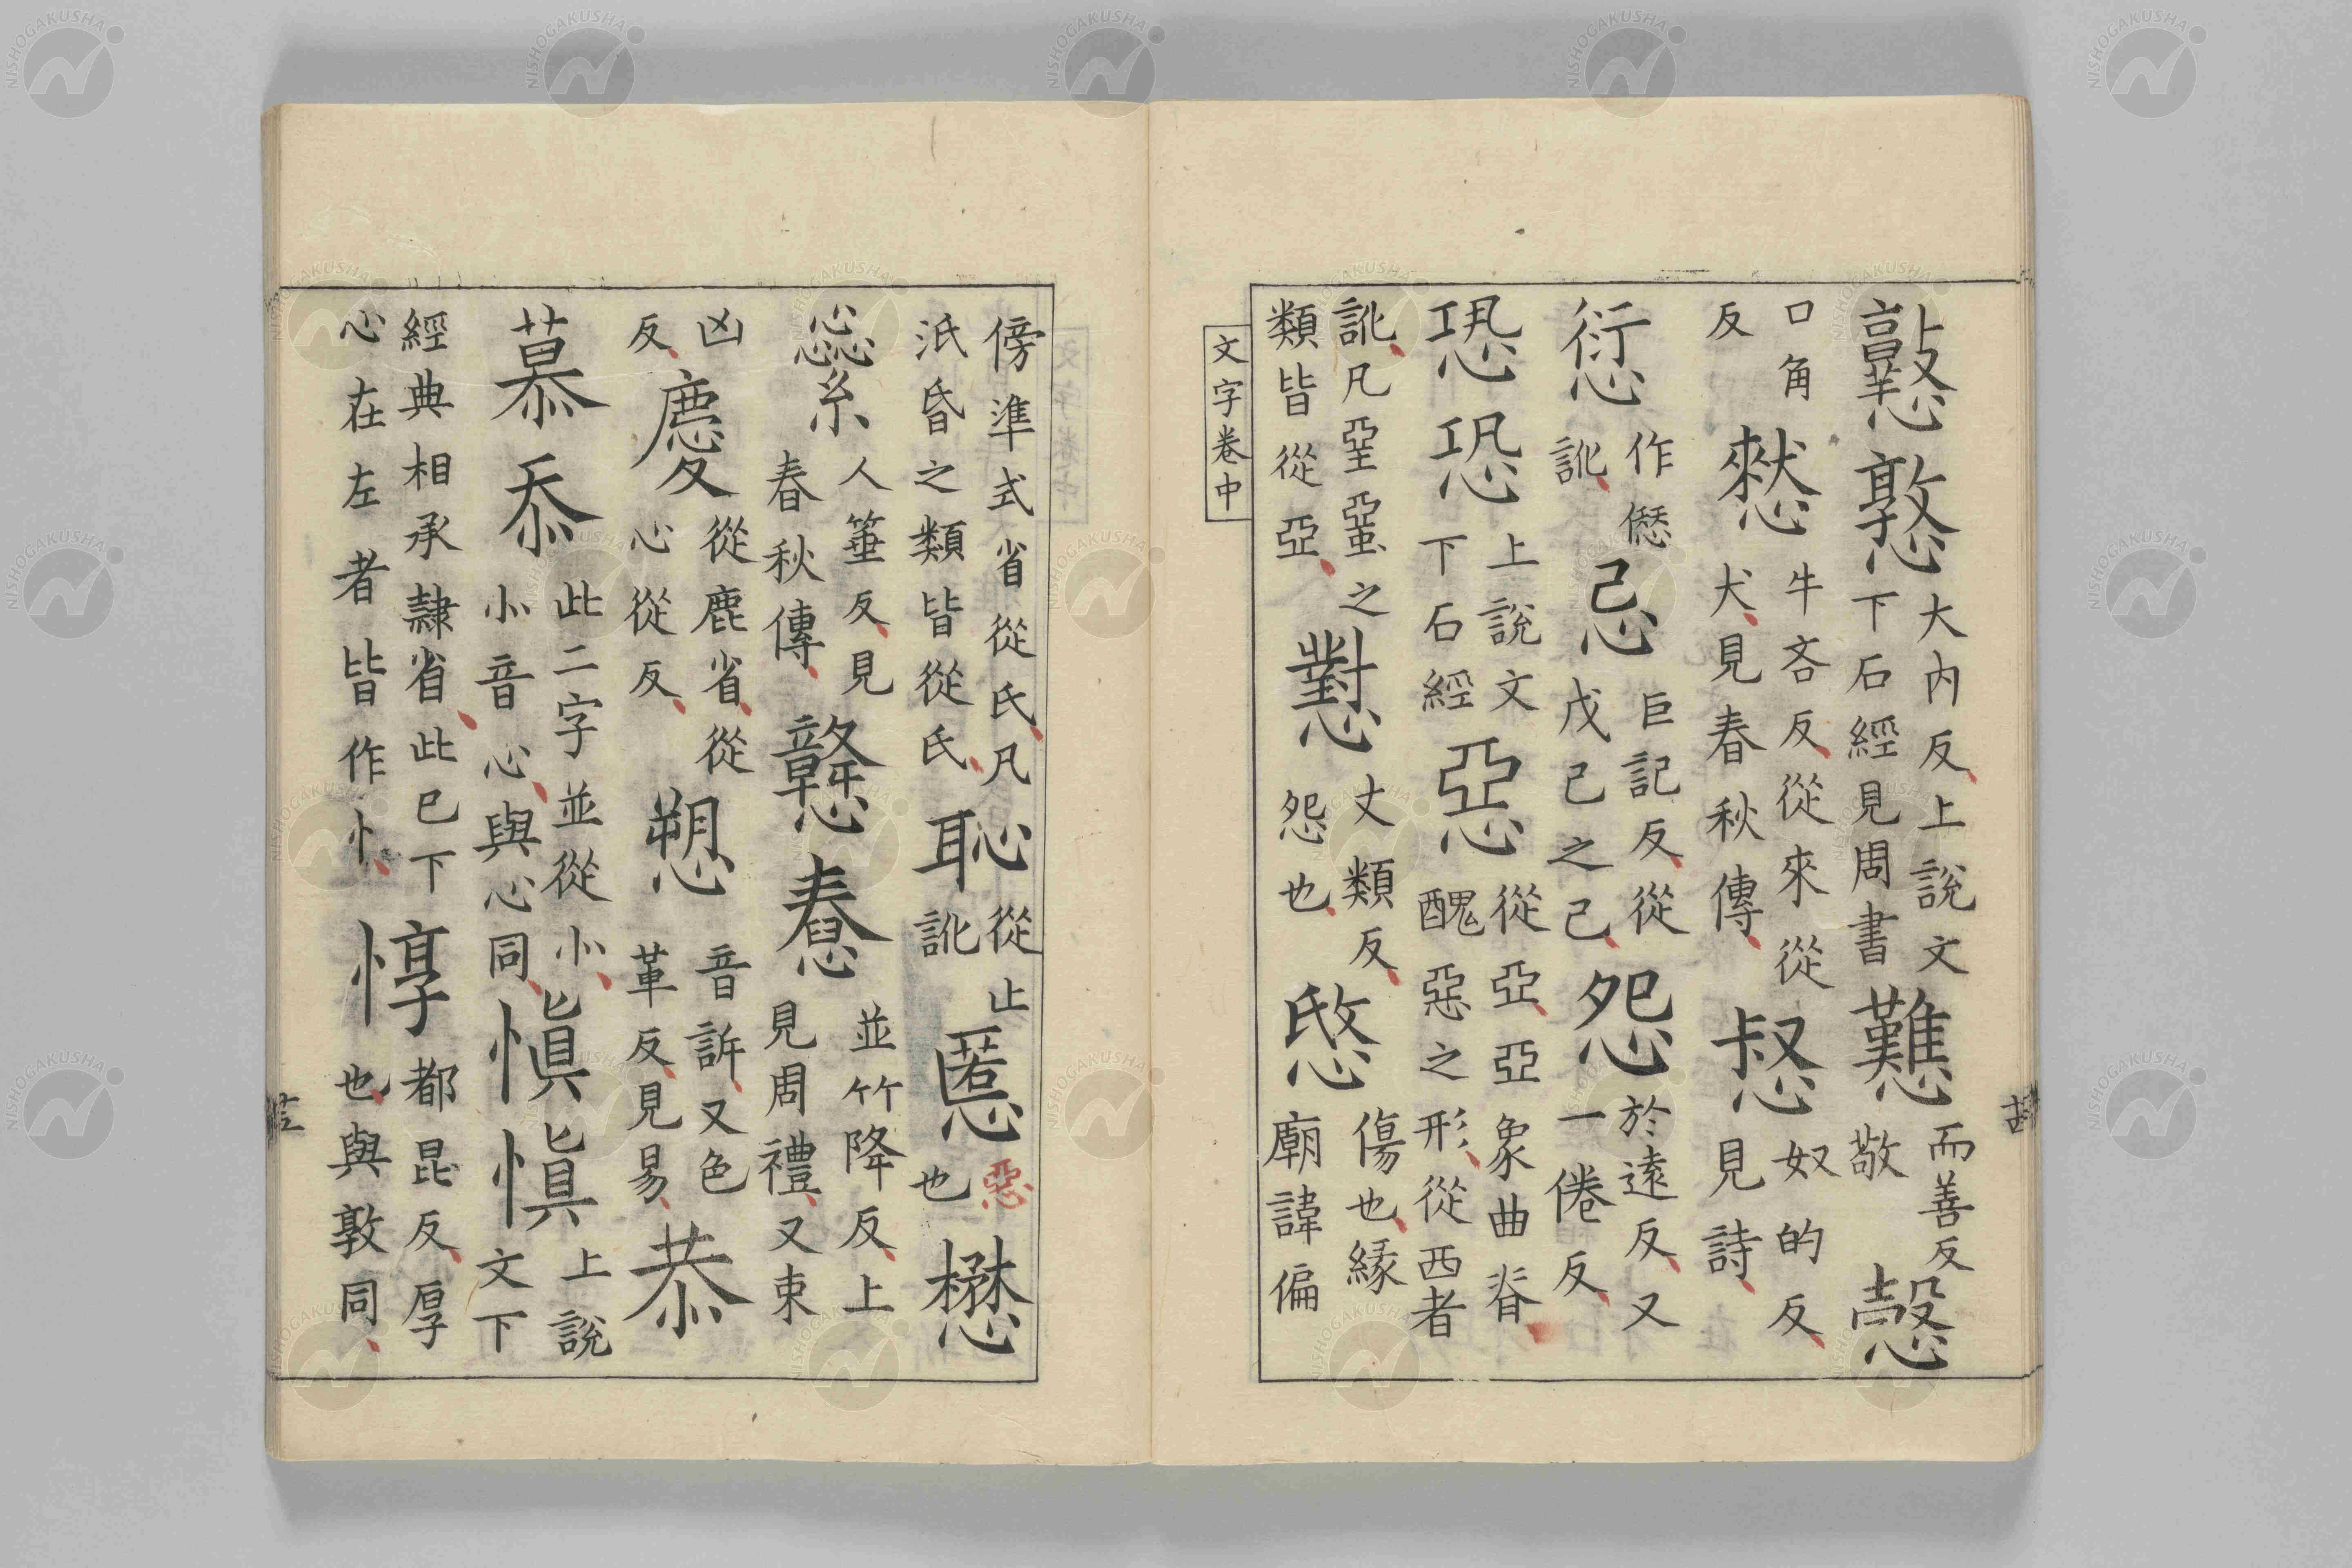 憝憝大内反上說文
下石經見周書戁而善反
敬愨
口角
反憖牛吝反從來從
犬見春秋傳惄奴的反
見詩
愆作僁
訛忌巨記反從
戊己之己怨於遠反又
一倦反
恐恐上說文
下石經惡從亞亞象曲脊
醜惡之形從西者
訛凡堊蝁之
類皆從亞懟丈類反
怨也愍傷也緣
廟諱偏
文字卷中
傍準式省從氏凡
泜昏之類皆從氏恥從止
訛慝惡
也懋
繠人箠反見
春秋傳戇惷並竹降反上
見周禮又束
凶
反慶從鹿省從
心從反愬音訴又色
革反見易恭
慕忝此二字並從㣺
小音心與心同愼愼上說
文下
經典相承隸省此已下
心在左者皆作忄惇都昆反厚
也與敦同
NISHOGAKUSHA